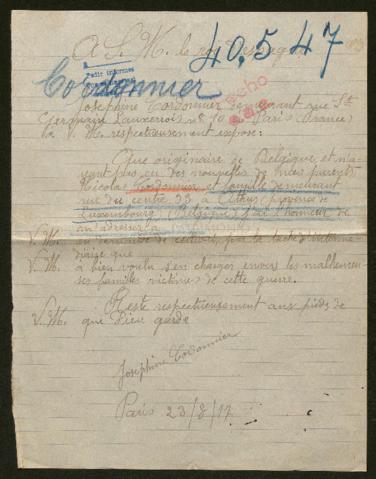 A S. M. le roi d'Espagne
40,547
Cordonnier
Josephine Cordonnier demeurant rue St
Germain l'auxerrois n° 10 Paris (France)
à V. M. respectueusement expose:
Que originaire de Belgique et n'a
yant plus eu des nouvelles de mes parents
Nicolas Cordonnier et famille demeurant
rue du centre 33 à Athus (province de
Luxembourg) (Belgique) j'ai l'honneur de
m'adresser à
V. M. en demande de
V. M. a bien voulu s'en charger envers les malheureu
ses familles victimes de cette guerre.
Reste respectueusement aux pieds de
V. M. que Dieu garde
Josephine Cordonnier
Paris 23/8/17